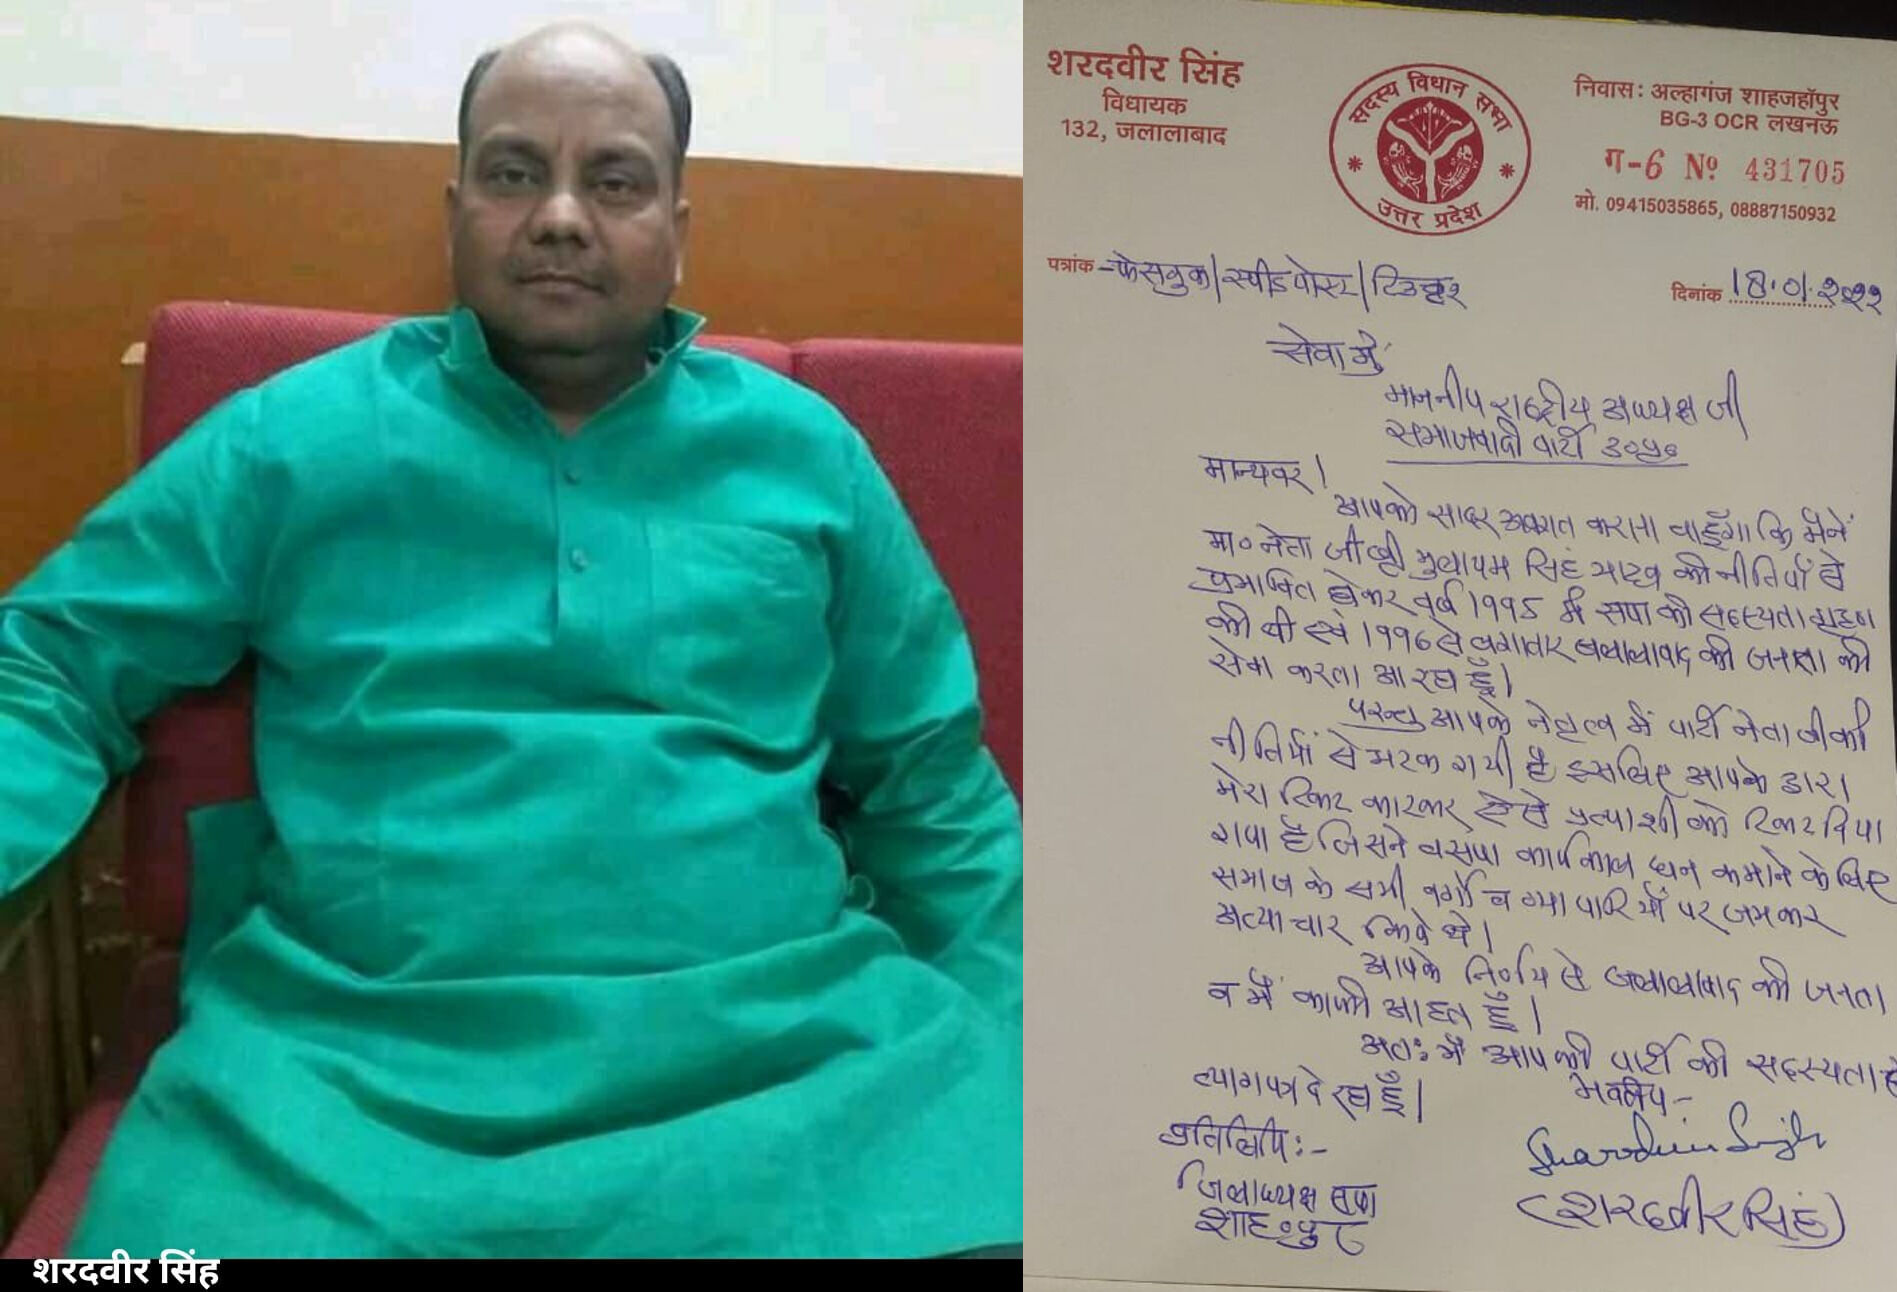 शरदवीर सिंह
विधायक
132, जलालाबाद
सदस्य विधान सभा
उत्तर प्रदेश
निवास: अल्हागंज शाहजहाँपुर
BG-3 OCR लखनऊ
ग-6 Nº 431705
मो. 09415035865, 08887150932
पत्रांक - फेसबुक/स्पीड पोस्ट/टिवटर
दिनांक 18.01.२०२२
सेवा में
माननीय राष्ट्रीय अध्यक्ष जी
समाजवादी पार्टी उ०प्र०
मान्यवर!
आपको सादर अवगत कराना चाहूँगा कि मैंने
मा० नेता जी श्री मुलायम सिंह यादव की नीतियों से
प्रभावित होकर वर्ष १९९५ में सपा की सदस्यता ग्रहण
की थी एवं १९९६ से लगातार जलालाबाद की जनता की
सेवा करता आ रहा हूँ।
परन्तु आपके नेतृत्व में पार्टी नेता जी की
नीतियों से भटक गयी है इसलिए आपके द्वारा
मेरा टिकट काटकर ऐसे प्रत्याशी को टिकट दिया
गया है जिसने बसपा कार्यकाल धन कमाने के लिए
समाज के सभी वर्गों व व्यापारियों पर जमकर
अत्याचार किये थे।
आपके निर्णय से जलालाबाद की जनता
व मैं काफी आहत हूँ।
अतः मैं आपकी पार्टी की सदस्यता से
त्यागपत्र दे रहा हूँ।
भवदीय-
प्रतिलिपि:-
Sharadvir Singh
जिलाध्यक्ष सपा
शाह०पुर
(शरदवीर सिंह)
शरदवीर सिंह